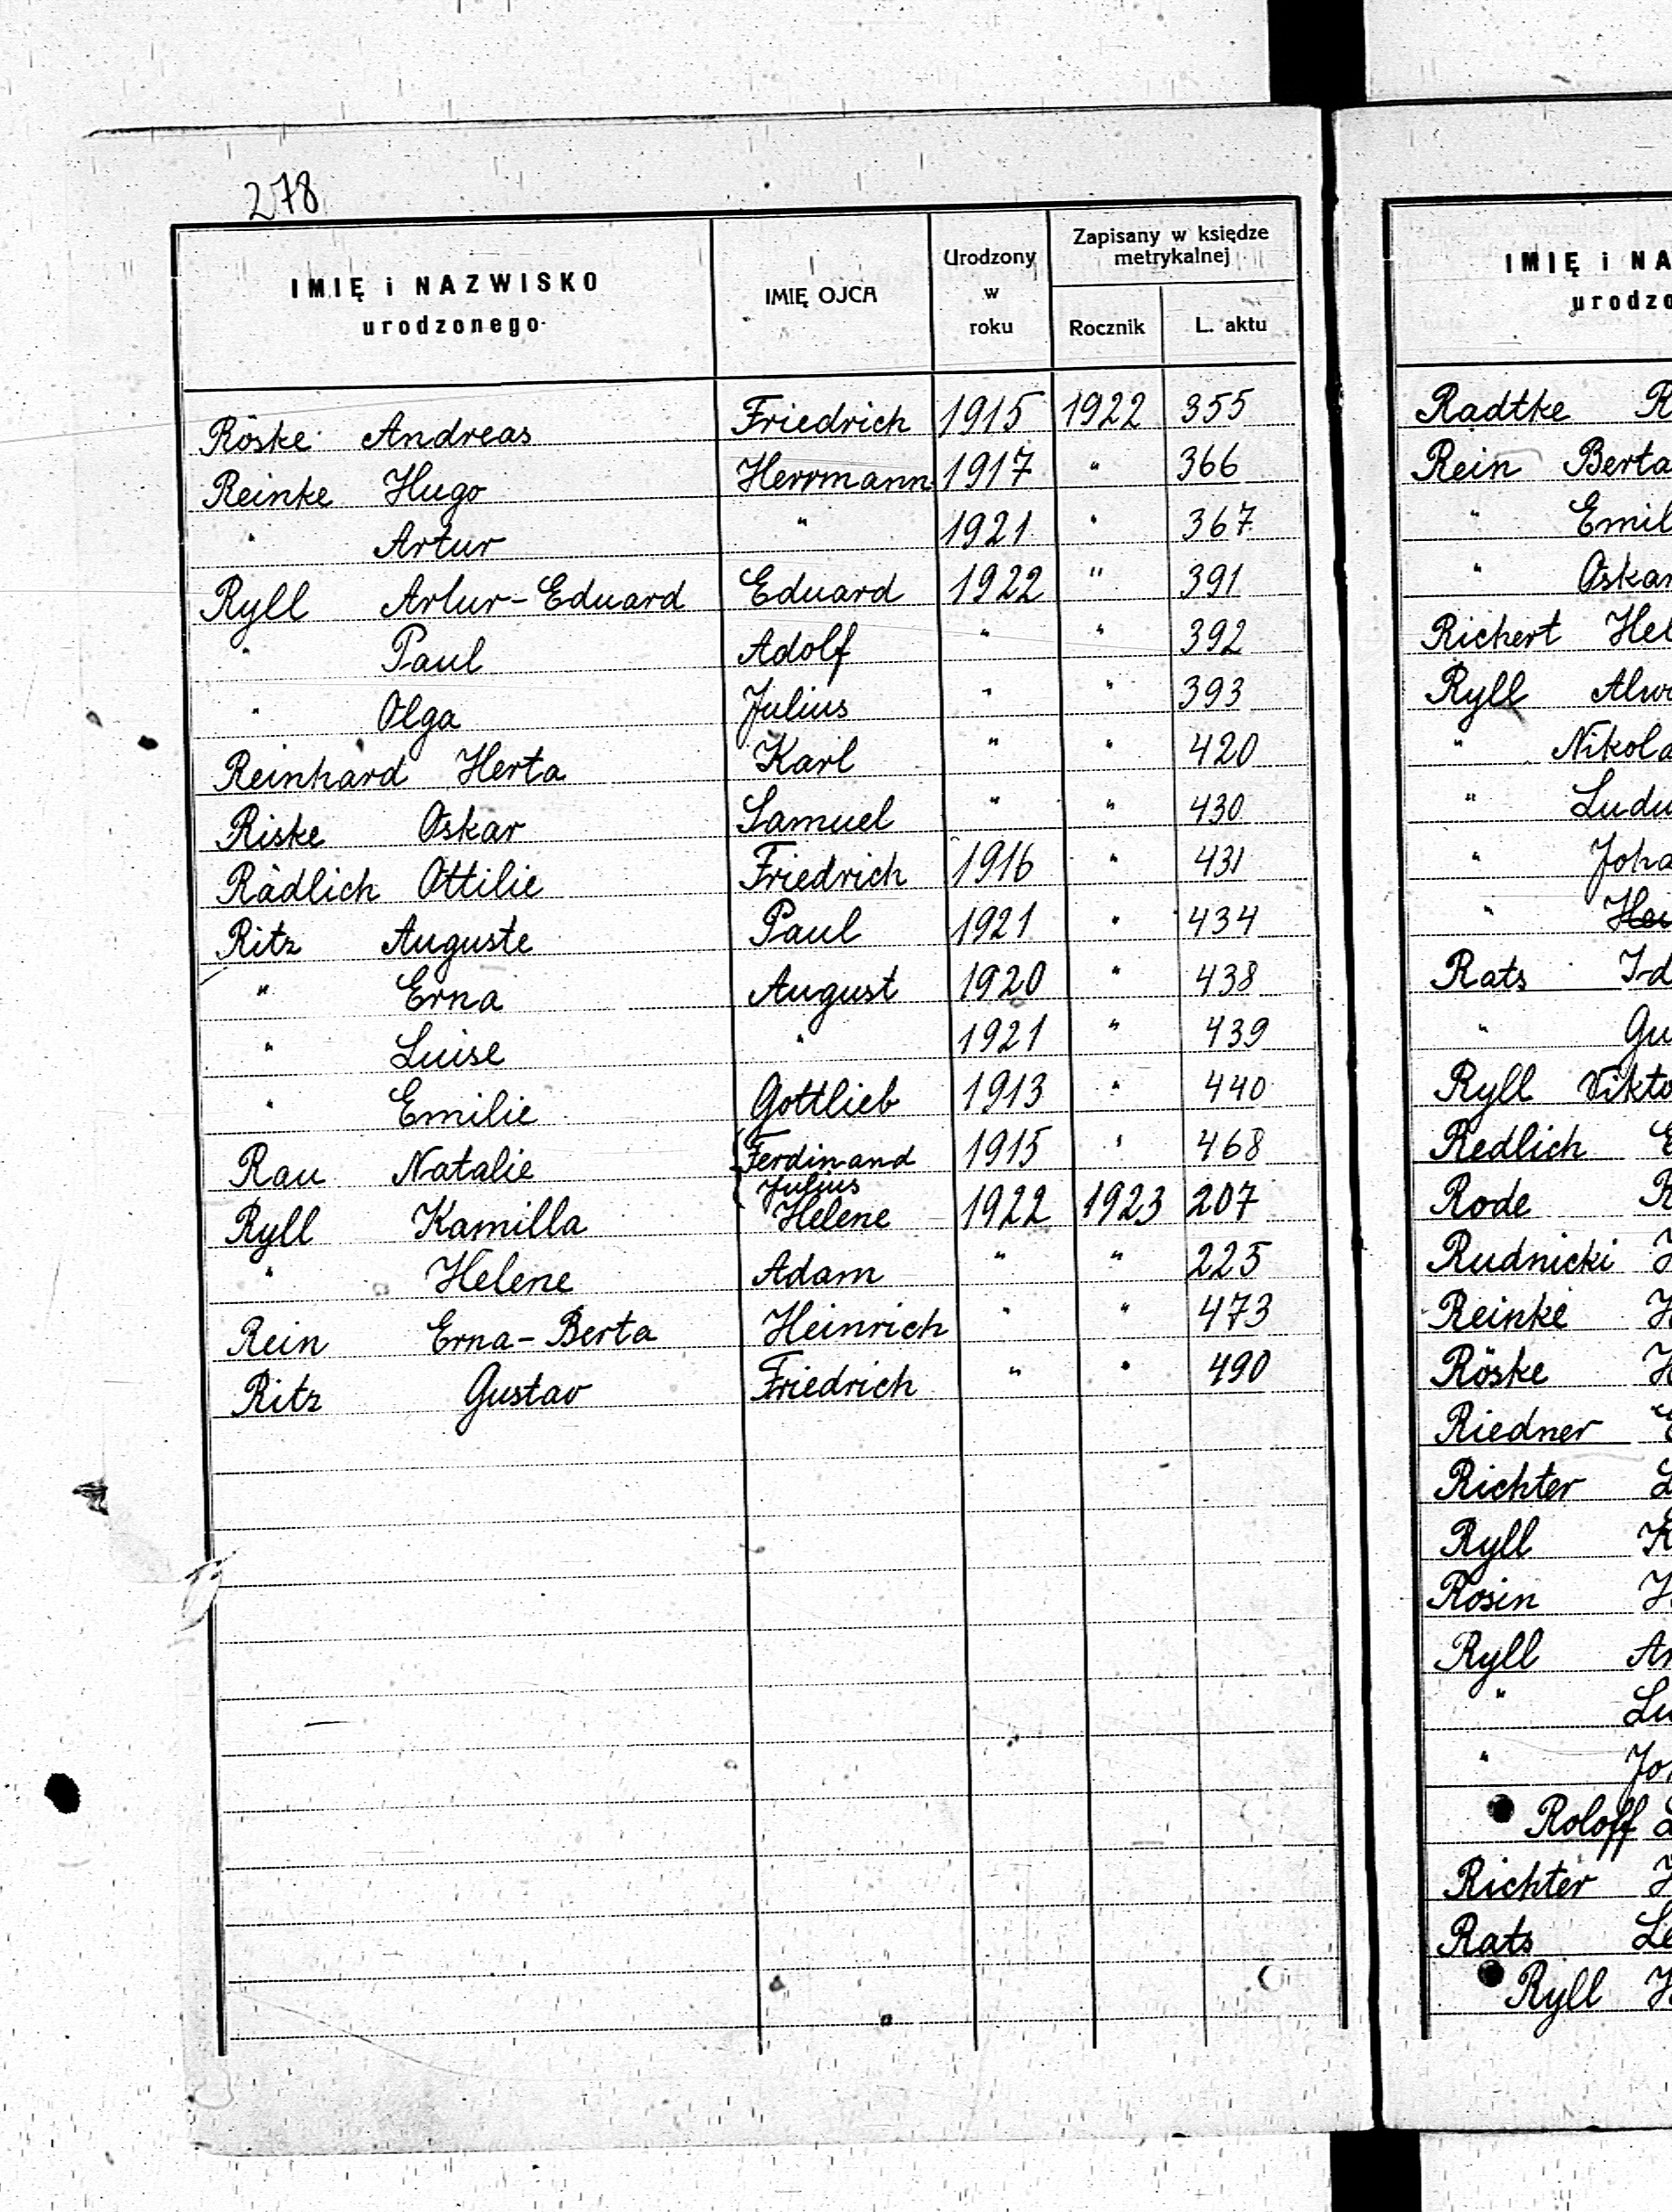 278
IMIĘ i NAZWISKO
urodzonego
IMIĘ OJCA
Urodzony
w
roku
Zapisany w księdze
metrykalnej
Rocznik L. aktu
Röske Andreas Friedrich 1915 1922 355
Reinke Hugo Herrmann 1917 " 366
" Artur " 1921 " 367
Ryll Artur-Eduard Eduard 1922 " 391
" Paul Adolf " " 392
" Olga Julius " " 393
Reinhard Herta Karl " " 420
Riske Oskar Samuel " " 430
Rädlich Ottilie Friedrich 1916 " 431
Ritz Auguste Paul 1921 " 434
" Erna August 1920 " 438
" Luise " 1921 " 439
" Emilie Gottlieb 1913 " 440
Rau Natalie Ferdinand 1915 " 468
Julius
Ryll Kamilla Helene 1922 1923 207
" Helene Adam " " 225
Rein Erna-Berta Heinrich " " 473
Ritz Gustav Friedrich " " 490
IMIĘ i NA
urodzo
Radtke R
Rein Berta
" Emil
" Oskar
Richert Hel
Ryll Alw
" Nikola
" Ludw
" Joha
" Hei
Rats Id
" Gu
Ryll Vikto
Redlich E
Rode R
Rudnicki
Reinke
Röske
Riedner
Richter L
Ryll K
Rosin
Ryll Ar
" Lu
" Jo
Roloff L
Richter
Rats Le
Ryll